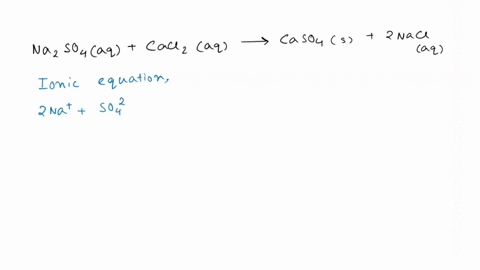 Na₂SO₄(aq) + CaCl₂(aq) ⟶ CaSO₄(s) + 2NaCl (aq)
Ionic equation,
2Na⁺ + SO₄²